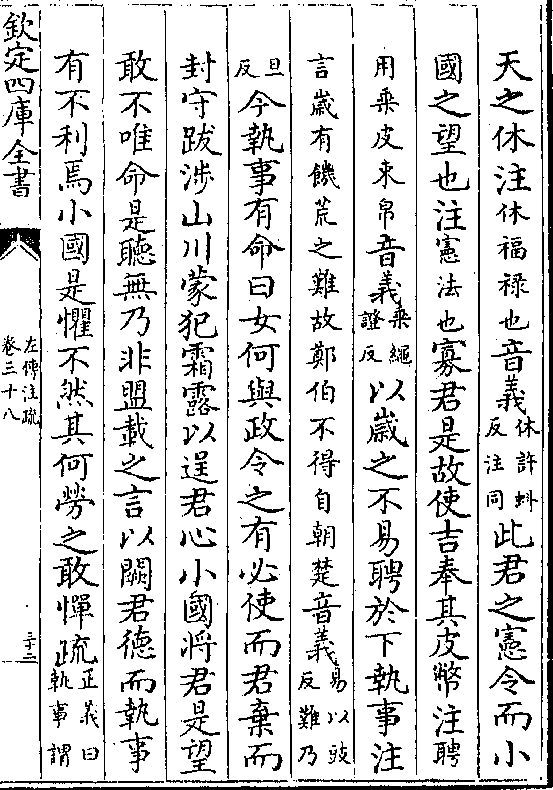 天之休注休福禄也音義休許蚪反注同此君之憲令而小
國之望也注憲法也寡君是故使吉奉其皮幣注聘
用乗皮束帛音義乗繩證反以歲之不易聘於下執事注
言歲有饑荒之難故鄭伯不得自朝楚音義易以豉反難乃
旦反今執事有命曰女何與政令之有必使而君棄而
封守跋涉山川蒙犯霜露以逞君心小國將君是望
敢不唯命是聽無乃非盟載之言以闕君德而執事
有不利焉小國是懼不然其何勞之敢憚疏正義曰執事謂
欽定四庫全書
左傳注疏
卷三十八
三十二